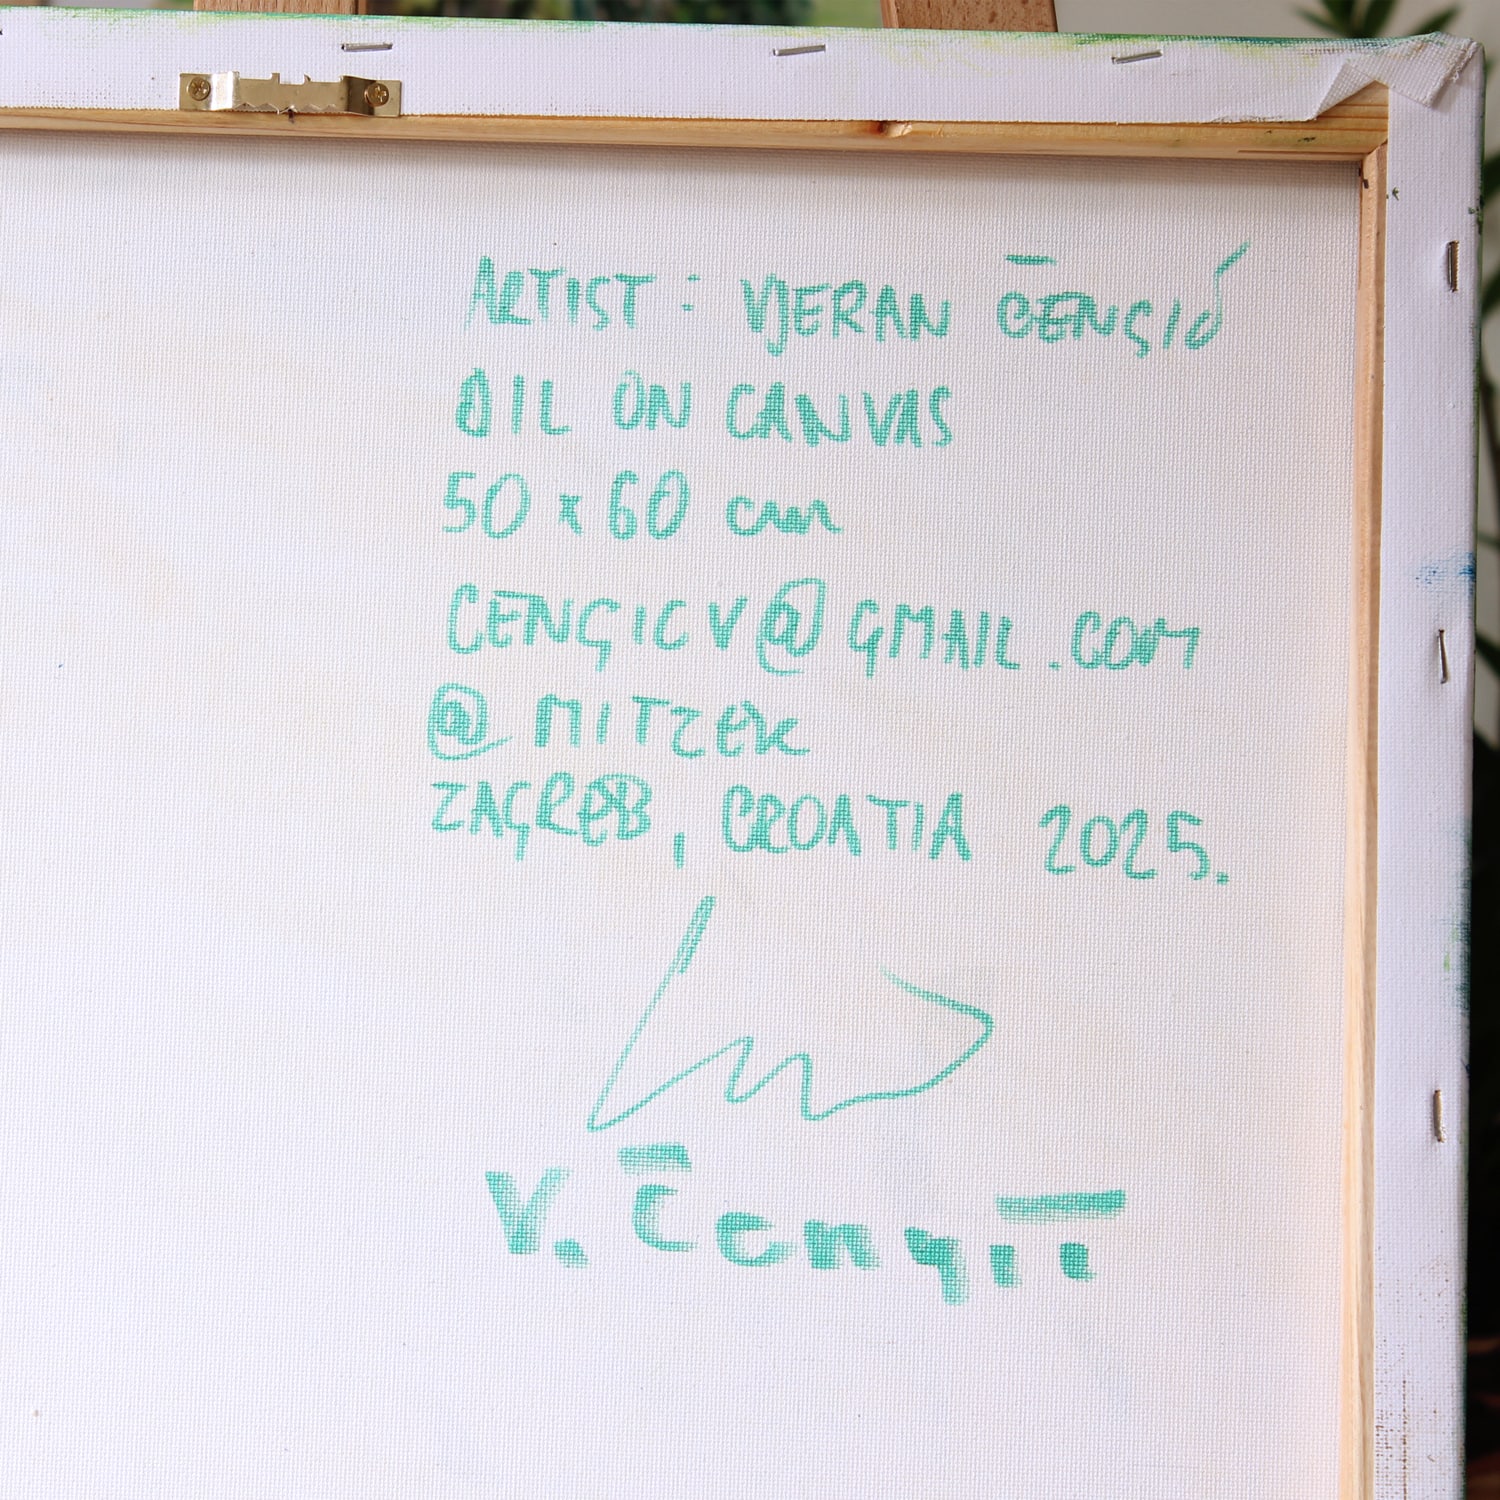 ARTIST: VJERAN ČENGIĆ
OIL ON CANVAS
50 x 60 cm
CENGICV@GMAIL.COM
@MITZEK
ZAGREB, CROATIA 2025.
V. Čengić